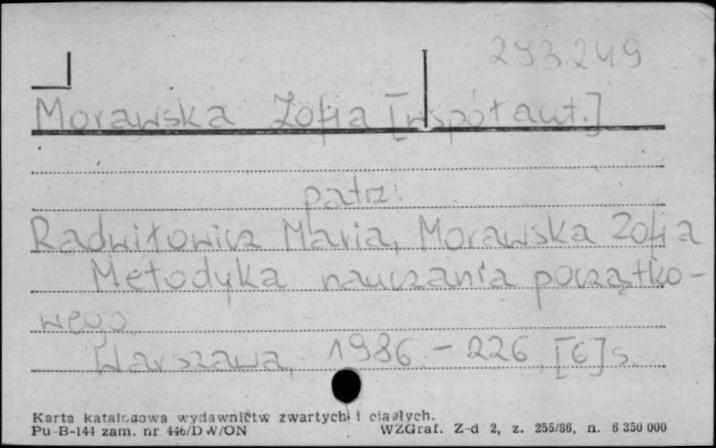 293249
Morawska Zofia [współaut.]
patrz:
Radwiłowicz Maria, Morawska Zofia
Metodyka nauczania początko-
wego.
Warszawa, 1986. - 226, [6] s.
Karta katalogowa wydawnictw zwartych i ciągłych.
Pu-B-144 zam. nr 446/DW/ON WZGraf. Z-d 2, z. 255/86, n. 6 350 000